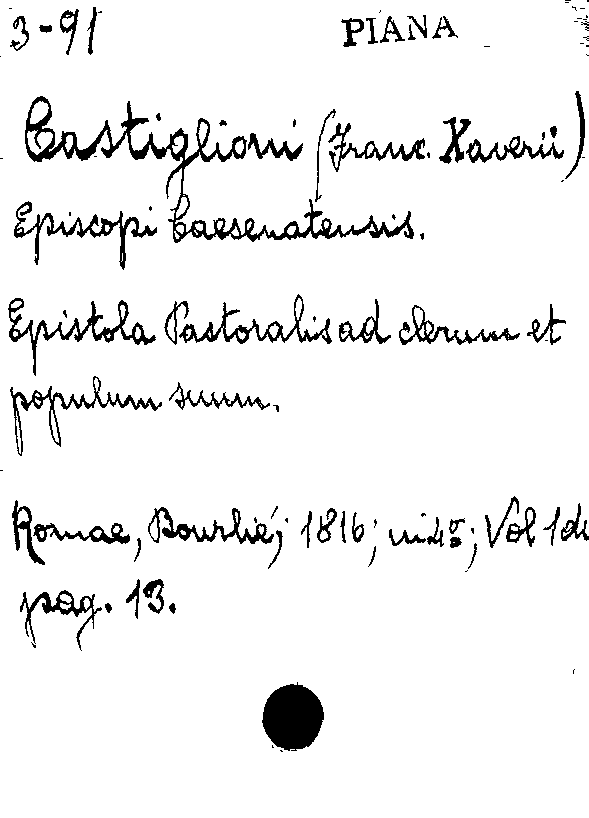 3-91 PIANA
Castiglioni (Franc. Xaverii)
Episcopi Caesenatensis.
Epistola Pastoralis ad clerum et
populum suum.
Romae, Bourlié; 1816; in 4º; Vol 1 di
pag. 13.